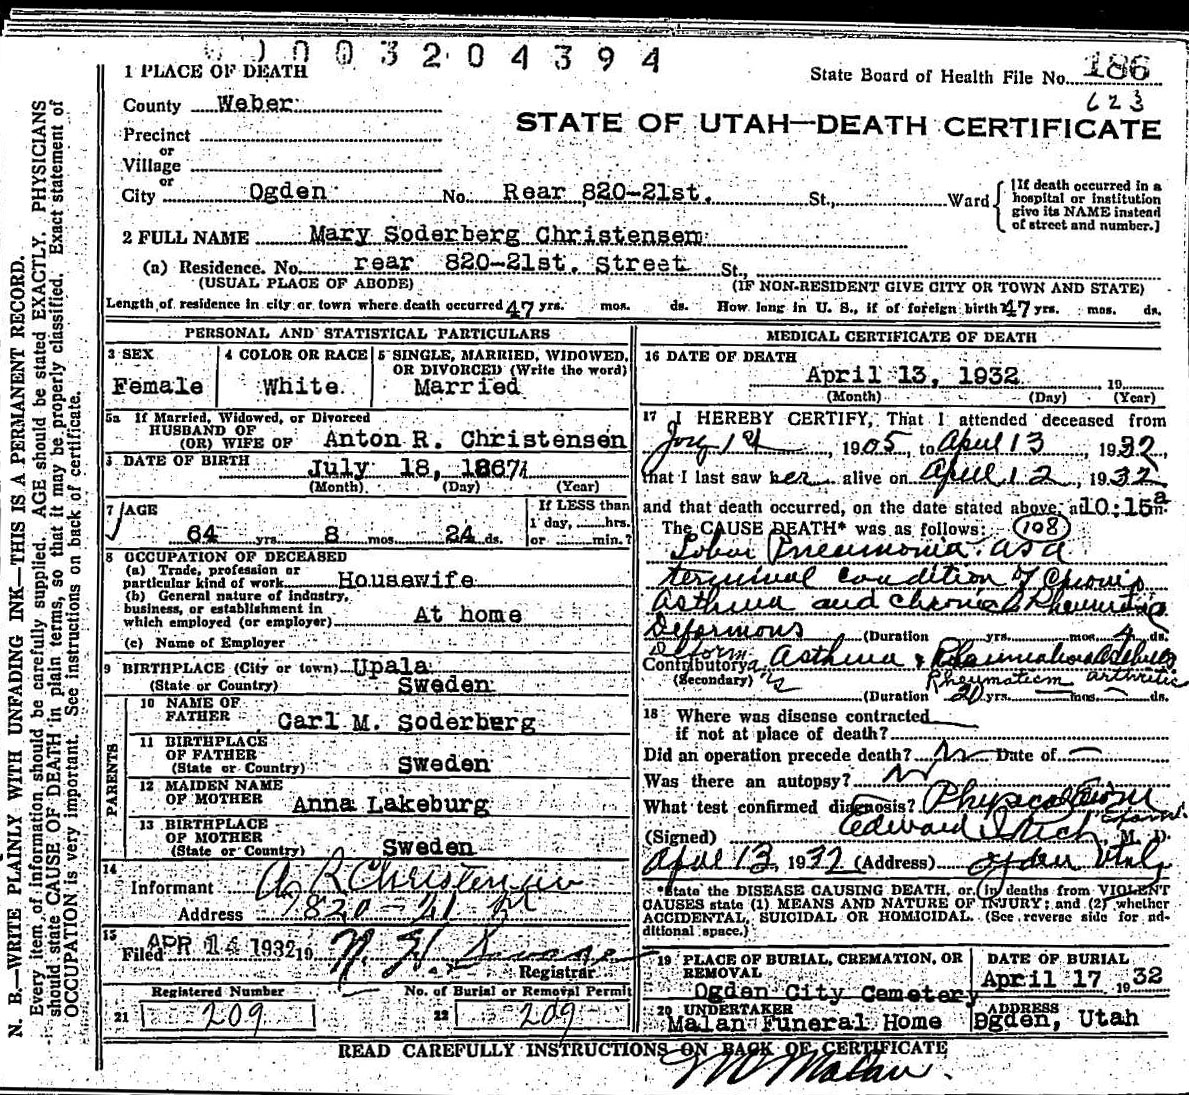 0003204394
1 PLACE OF DEATH
State Board of Health File No. 186
County Weber
623
STATE OF UTAH—DEATH CERTIFICATE
Precinct
or
Village
or
City Ogden No. Rear 820-21st. St., Ward
[If death occurred in a hospital or institution give its NAME instead of street and number.]
2 FULL NAME Mary Soderberg Christensem
(a) Residence. No. rear 820-21st. Street St.,
(USUAL PLACE OF ABODE) (IF NON-RESIDENT GIVE CITY OR TOWN AND STATE)
Length of residence in city or town where death occurred 47 yrs. mos. ds. How long in U. S., if of foreign birth? 47 yrs. mos. ds.
PERSONAL AND STATISTICAL PARTICULARS
3 SEX
Female
4 COLOR OR RACE
White
5 SINGLE, MARRIED, WIDOWED,
OR DIVORCED (Write the word)
Married
5a If Married, Widowed, or Divorced
HUSBAND OF
(OR) WIFE OF Anton R. Christensen
DATE OF BIRTH
July 18, 1867
(Month) (Day) (Year)
7 AGE
64 yrs. 8 mos. 24 ds.
If LESS than
1 day, hrs.
or min.?
8 OCCUPATION OF DECEASED
(a) Trade, profession or
particular kind of work Housewife
(b) General nature of industry,
business, or establishment in
which employed (or employer) At home
(c) Name of Employer
9 BIRTHPLACE (City or town) Upala
(State or Country) Sweden
PARENTS
10 NAME OF
FATHER Carl M. Soderberg
11 BIRTHPLACE
OF FATHER
(State or Country) Sweden
12 MAIDEN NAME
OF MOTHER Anna Lakeburg
13 BIRTHPLACE
OF MOTHER
(State or Country) Sweden
14
Informant A R Christensen
Address 820-21 St
15
Filed APR 14 1932 19
Registrar
Registered Number
21 209
No. of Burial or Removal Permit
22 209
MEDICAL CERTIFICATE OF DEATH
16 DATE OF DEATH
April 13, 1932 19
(Month) (Day) (Year)
17 I HEREBY CERTIFY, That I attended deceased from
1905, to April 13, 1932,
that I last saw her alive on April 12, 1932,
and that death occurred, on the date stated above, at 10:15 a m.
The CAUSE DEATH* was as follows: 108
Lobar Pneumonia as a
terminal condition of Chronic
Asthma and chronic Rheumatism
Deformous
(Duration yrs. mos. 4 ds.
Contributory Asthma &
(Secondary) Rheumatism arthritic
(Duration 20 yrs. mos. ds.
18 Where was disease contracted
if not at place of death?
Did an operation precede death? No Date of
Was there an autopsy? No
What test confirmed diagnosis? Physical
(Signed) Edward I Rich M. D.
April 13 1932 (Address) Ogden Utah
*State the DISEASE CAUSING DEATH, or, (in deaths from VIOLENT
CAUSES state (1) MEANS AND NATURE OF INJURY; and (2) whether
ACCIDENTAL, SUICIDAL OR HOMICIDAL. (See reverse side for ad-
ditional space.)
19 PLACE OF BURIAL, CREMATION, OR
REMOVAL
Ogden City Cemetery
DATE OF BURIAL
April 17 19 32
20 UNDERTAKER
Malan Funeral Home
ADDRESS
Bgden, Utah
READ CAREFULLY INSTRUCTIONS ON BACK OF CERTIFICATE
Malan
N. B.—WRITE PLAINLY WITH UNFADING INK—THIS IS A PERMANENT RECORD.
Every item of information should be carefully supplied. AGE should be stated EXACTLY. PHYSICIANS
should state CAUSE OF DEATH in plain terms, so that it may be properly classified. Exact statement of
OCCUPATION is very important. See instructions on back of certificate.